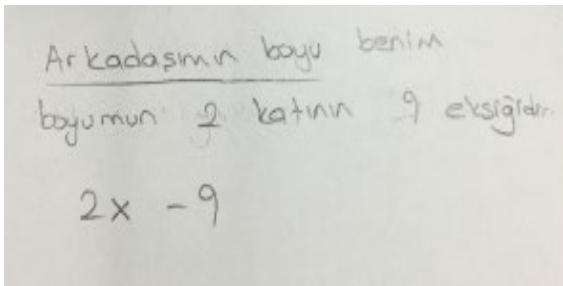 Arkadaşımın boyu benim
boyumun 2 katının 9 eksiğidir.
2x - 9